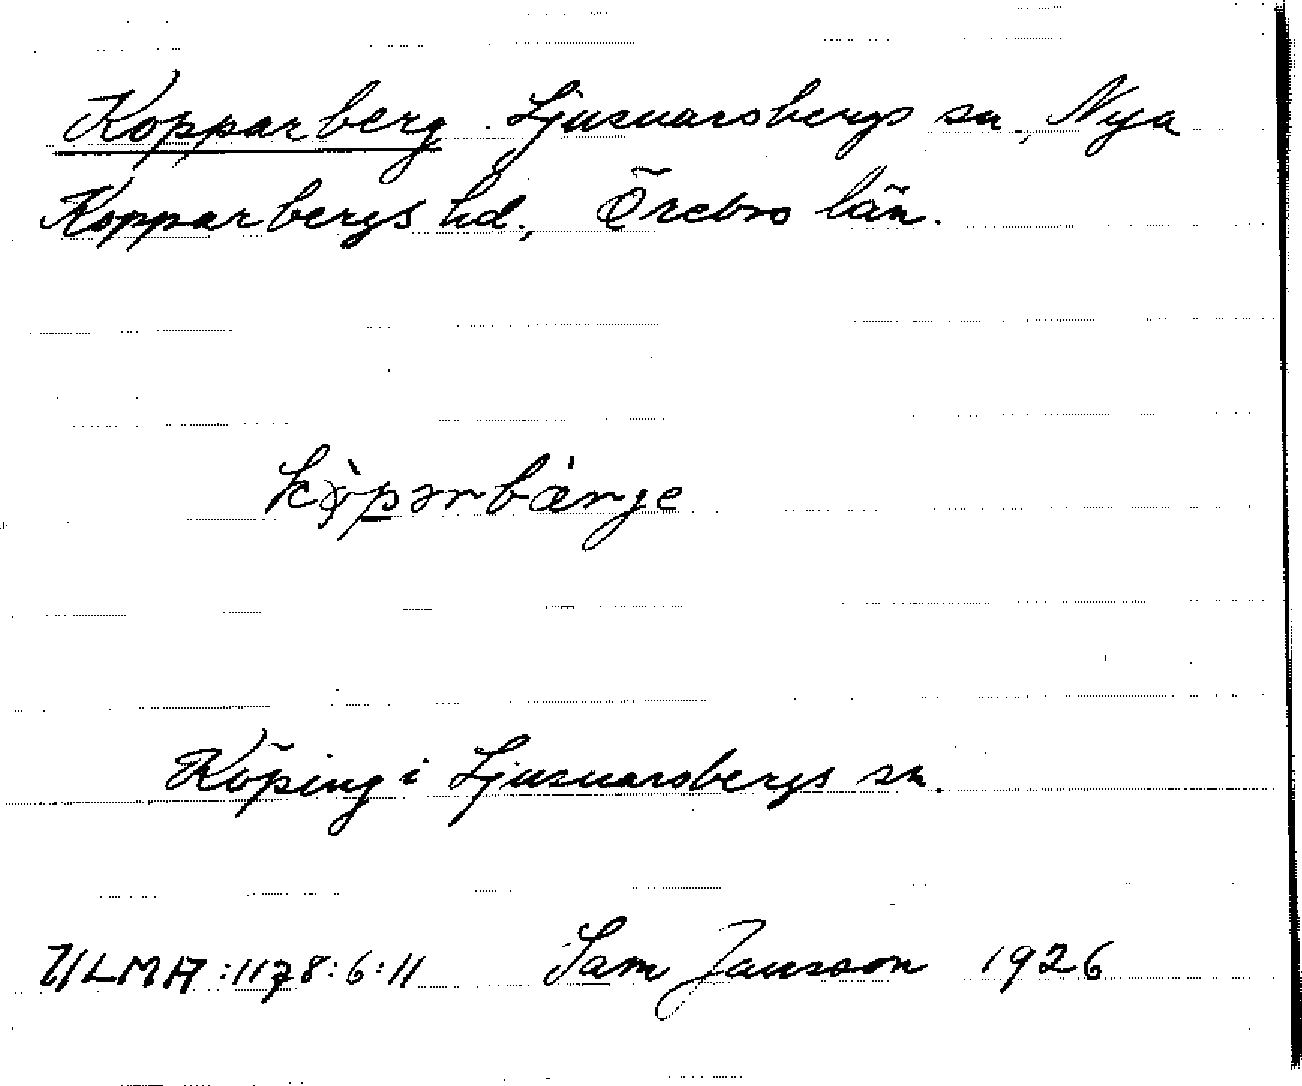 Kopparberg. Ljusnarsbergs sn, Nya
Kopparbergs hd., Örebro län.
Köping i Ljusnarsbergs sn.
ULMA:1178:6:11 Sam Jansson 1926